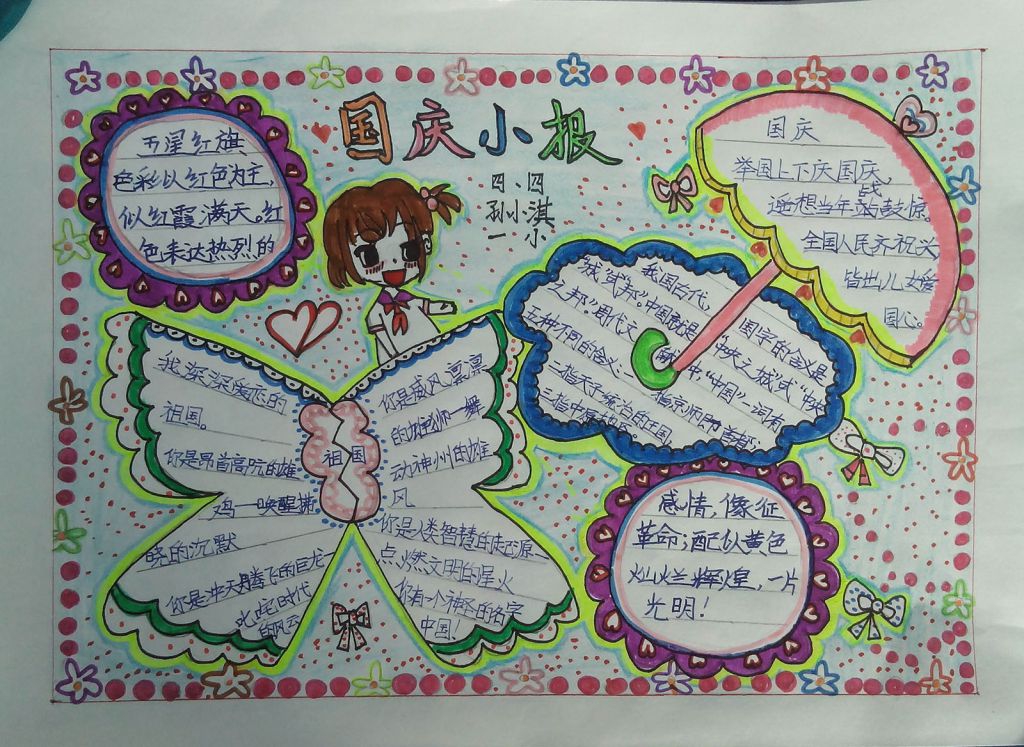 国庆小报
四、四
孙小淇
一小
五星红旗
色彩以红色为主,
似红霞满天。红
色来达热烈的
国庆
举国上下庆国庆,
遥想当年战鼓惊。
全国人民齐祝兴
皆出儿女爱
国心。
我国古代, 国字的含义是
"城"或"邦"。中国就是"中央之城"或"中央
之邦"。周代文献中,"中国"一词有
五种不同的含义:一指京师即首都;
二指天子统治的王国
三指中原地区
我深深爱恋的
祖国。
你是昂首高吭的雄
鸡—唤醒拂
晓的沉默
你是冲天腾飞的巨龙—
叱咤时代
的风云
祖国
你是威风凛凛
的雄狮—舞
动神州的雄
风
你是人类智慧的起源—
点燃文明的星火
你有一个神圣的名字
中国!
感情,像征
革命;配以黄色
灿烂辉煌,一片
光明!